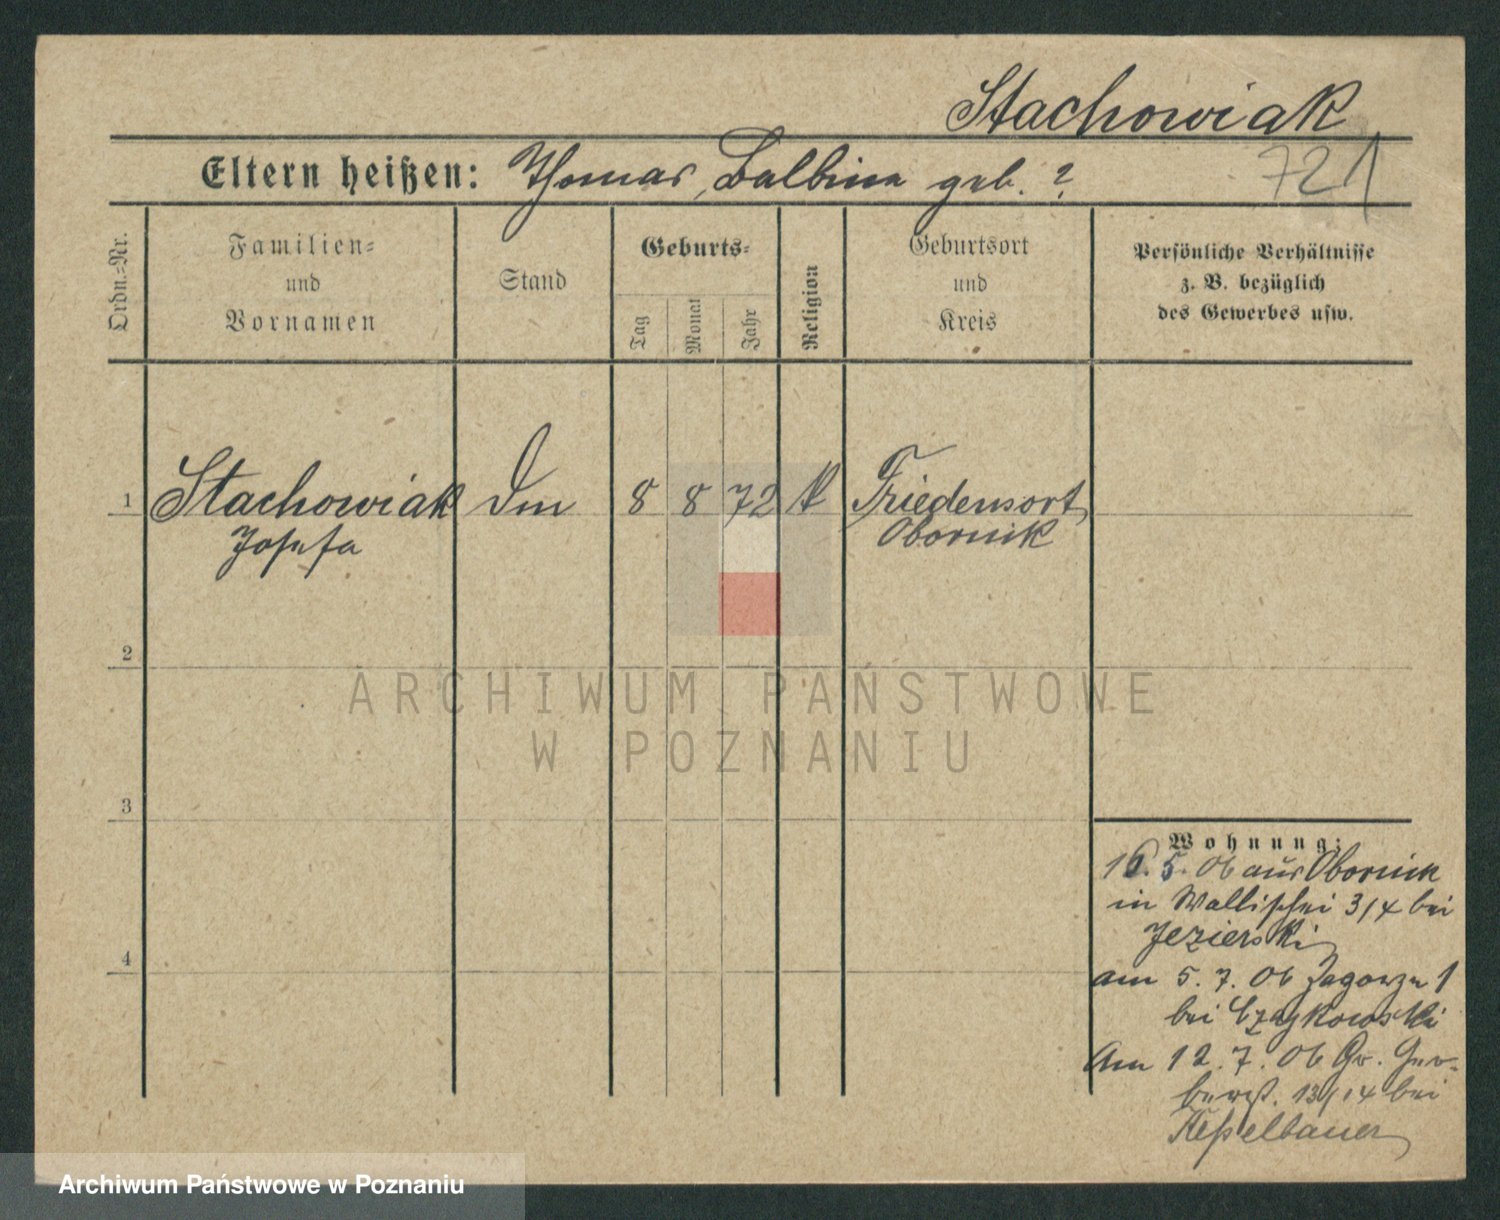 Stachowiak
721
Eltern heißen: Thomas, Balbina geb. ?
Ordn.-Nr.
Familien-
und
Vornamen
Stand
Geburts-
Tag
Monat
Jahr
Religion
Geburtsort
und
Kreis
Persönliche Verhältnisse
z. B. bezüglich
des Gewerbes usw.
1 Stachowiak 8 8 72 k Friedensort
Josefa Obornik
2
3
4
Wohnung:
16. 5. 06 aus Obornik
in Wallischei 3/4 bei
Jezierski
am 5. 7. 06 Zagorze 1
bei Czajkowski
Am 12. 7. 06 Gr. Ger-
berst. 13/14 bei
Keßelbauer
ARCHIWUM PAŃSTWOWE
W POZNANIU
Archiwum Państwowe w Poznaniu